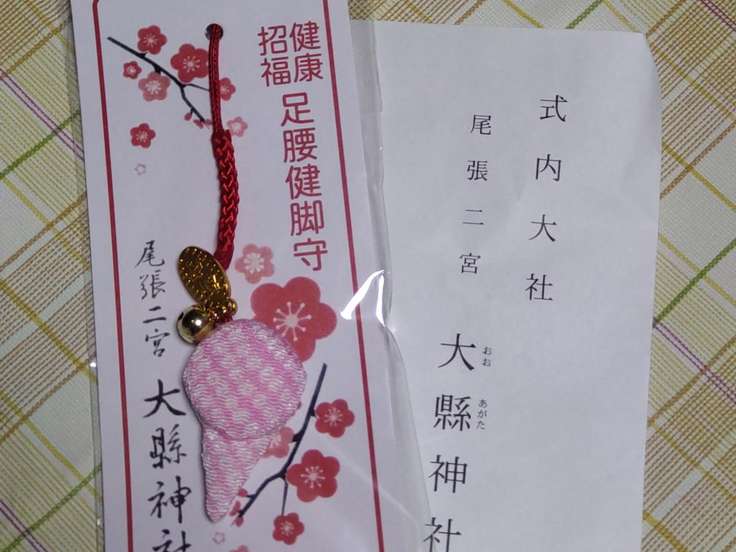 健康
招福
足腰健脚守
尾張二宮
大縣神社
式内大社
尾張二宮
大縣神社
おお
あがた